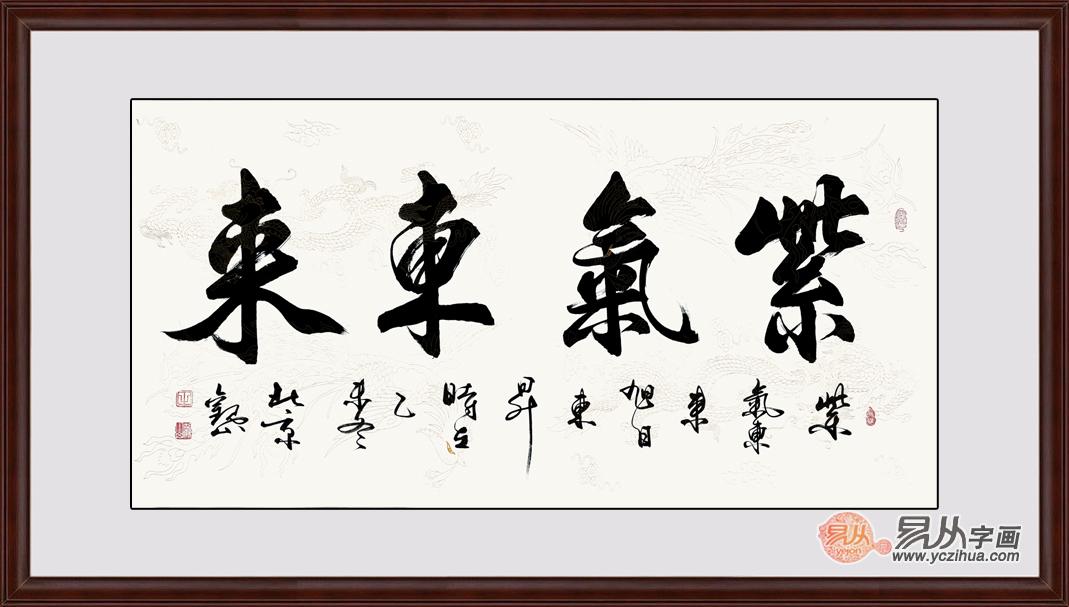 紫氣東来
紫
氣東
来
旭日
東
昇
時在
乙
未冬
北京
易从
yejon
易从字画
www.yczihua.com